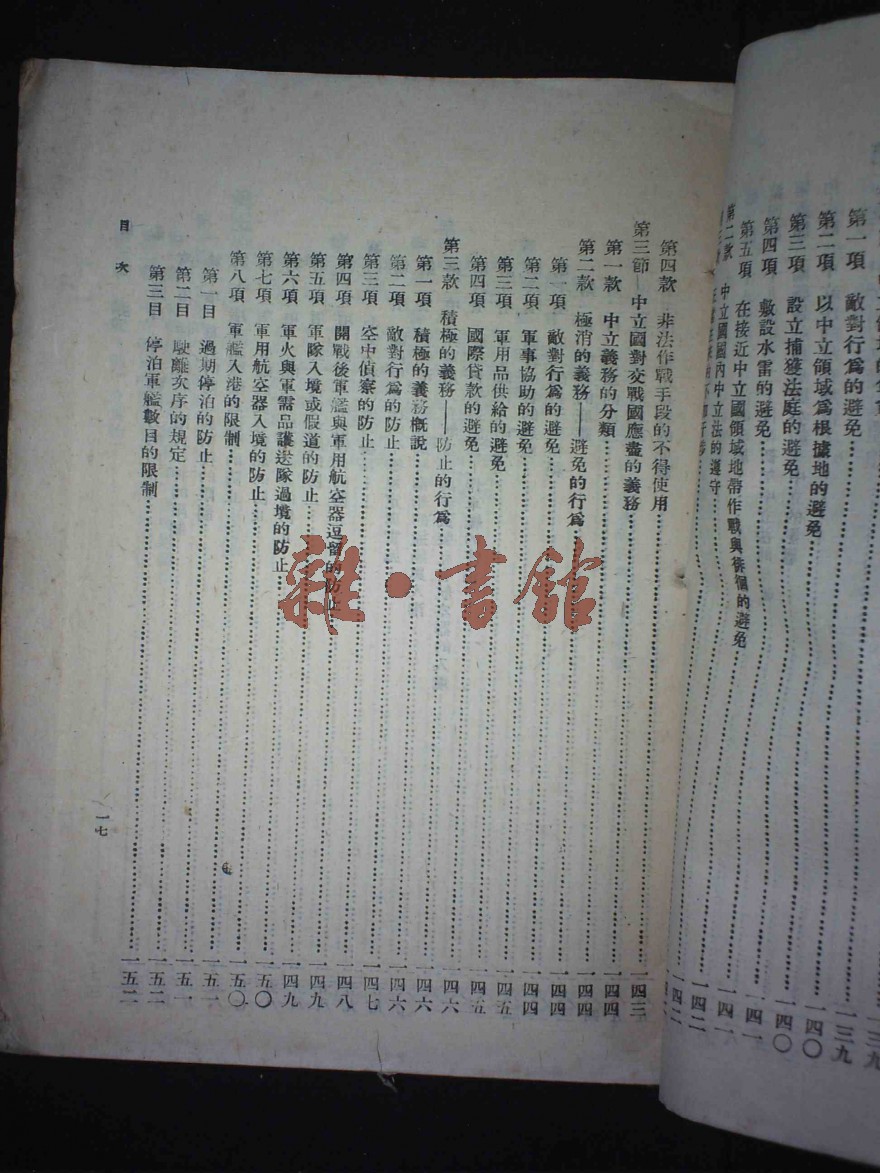 第一項 敵對行爲的避免 一三九
第二項 以中立領域爲根據地的避免 一四〇
第三項 設立捕獲法庭的避免 一四〇
第四項 敷設水雷的避免 一四一
第五項 在接近中立國領域地帶作戰與徘徊的避免 一四一
第二款 中立國國內中立法的遵守 一四二
第四款 非法作戰手段的不得使用
第三節 中立國對交戰國應盡的義務 一四三
第一款 中立義務的分類 一四四
第二款 極消的義務——避免的行爲 一四四
第一項 敵對行爲的避免 一四四
第二項 軍事協助的避免 一四四
第三項 軍用品供給的避免 一四五
第四項 國際貸款的避免 一四五
第三款 積極的義務——防止的行爲 一四六
第一項 積極的義務概說 一四六
第二項 敵對行爲的防止 一四六
第三項 空中偵察的防止 一四七
第四項 開戰後軍艦與軍用航空器逗留的防止 一四八
第五項 軍隊入境或假道的防止 一四九
第六項 軍火與軍需品護送隊過境的防止 一四九
第七項 軍用航空器入境的防止 一五〇
第八項 軍艦入港的限制 一五〇
第一目 過期停泊的防止 一五一
第二目 駛離次序的規定 一五一
第三目 停泊軍艦數目的限制 一五二
一五二
目次
一七
雜·書館